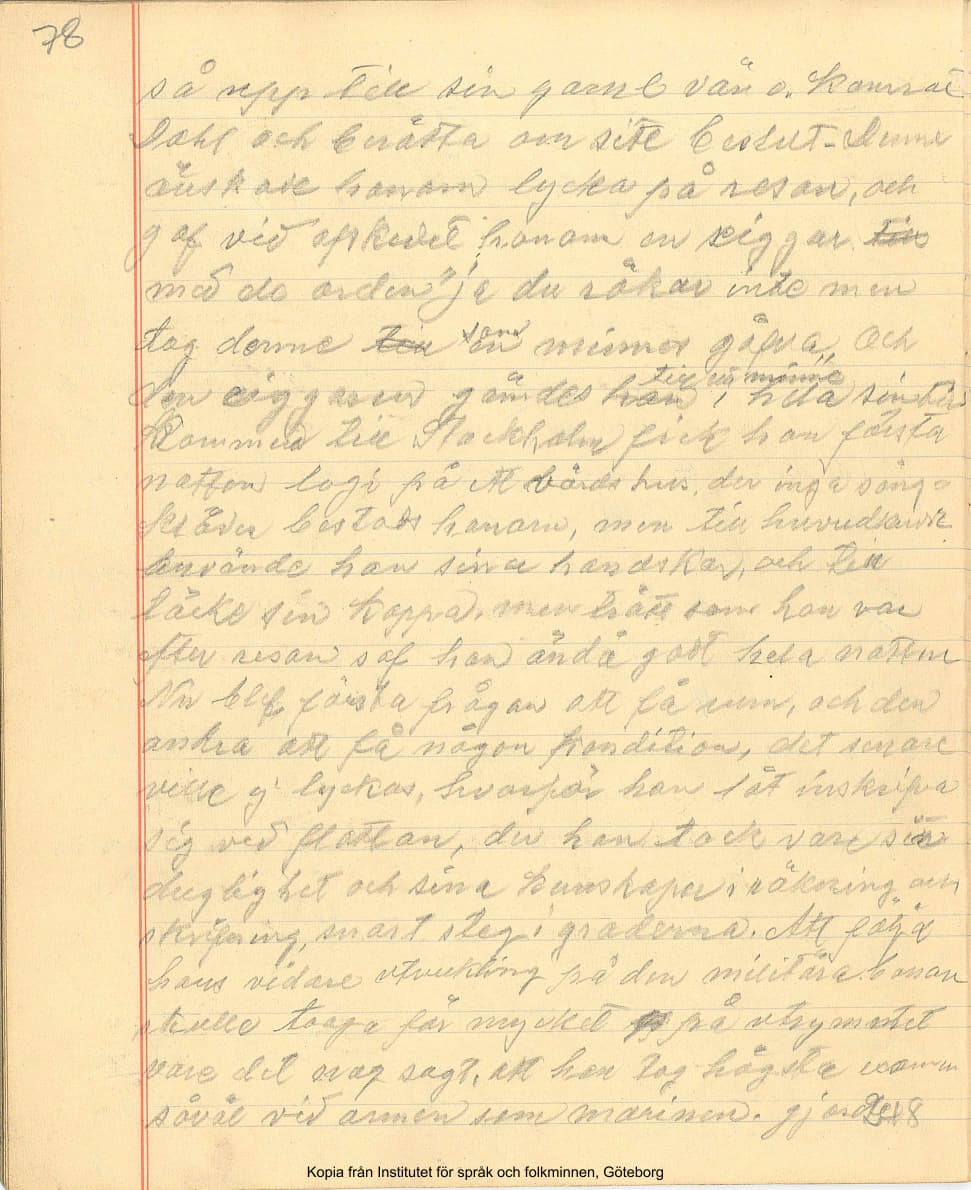 78
så upp till sin gamle vän o. Kamrat
Dahl och berätta om sitt beslut. Denne
önskade honom lycka på resan, och
gaf vid afskedet honom en siggar till
med de orden "ja du röker inte men
tag denne till som en minnes gåfva, och
den ciggaren gömdes han till ett minne i hela sin tid
Kommen till Stockholm fick han första
natten logi på ett värdshus, der inga säng-
kläder bestods honom, men till huvudkudde
använde han sina handskar, och till
täcke sin kappa, men trött som han var
efter resan sof han ändå godt hela natten
Nu blef första frågan att få rum, och den
andra att få någon kondition, det senare
ville ej lyckas, hvarför han lät inskrifva
sig ved flottan, der han tack vare sin
duglighet och sina kunskaper i räkning och
skrifning, snart steg i graderna. Att följa
hans vidare utveckling på den militära banan
skulle taga för mycket på utrymmet
vare det nog sagt, att han tog högsta examen
såväl vid armen som marinen. gjorde
Kopia från Institutet för språk och folkminnen, Göteborg